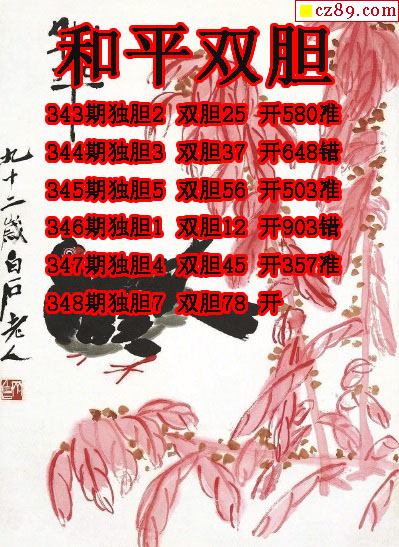 cz89.com
和平双胆
343期独胆2 双胆25 开580准
344期独胆3 双胆37 开648错
345期独胆5 双胆56 开503准
346期独胆1 双胆12 开903错
347期独胆4 双胆45 开357准
348期独胆7 双胆78 开
九十二岁白石老人